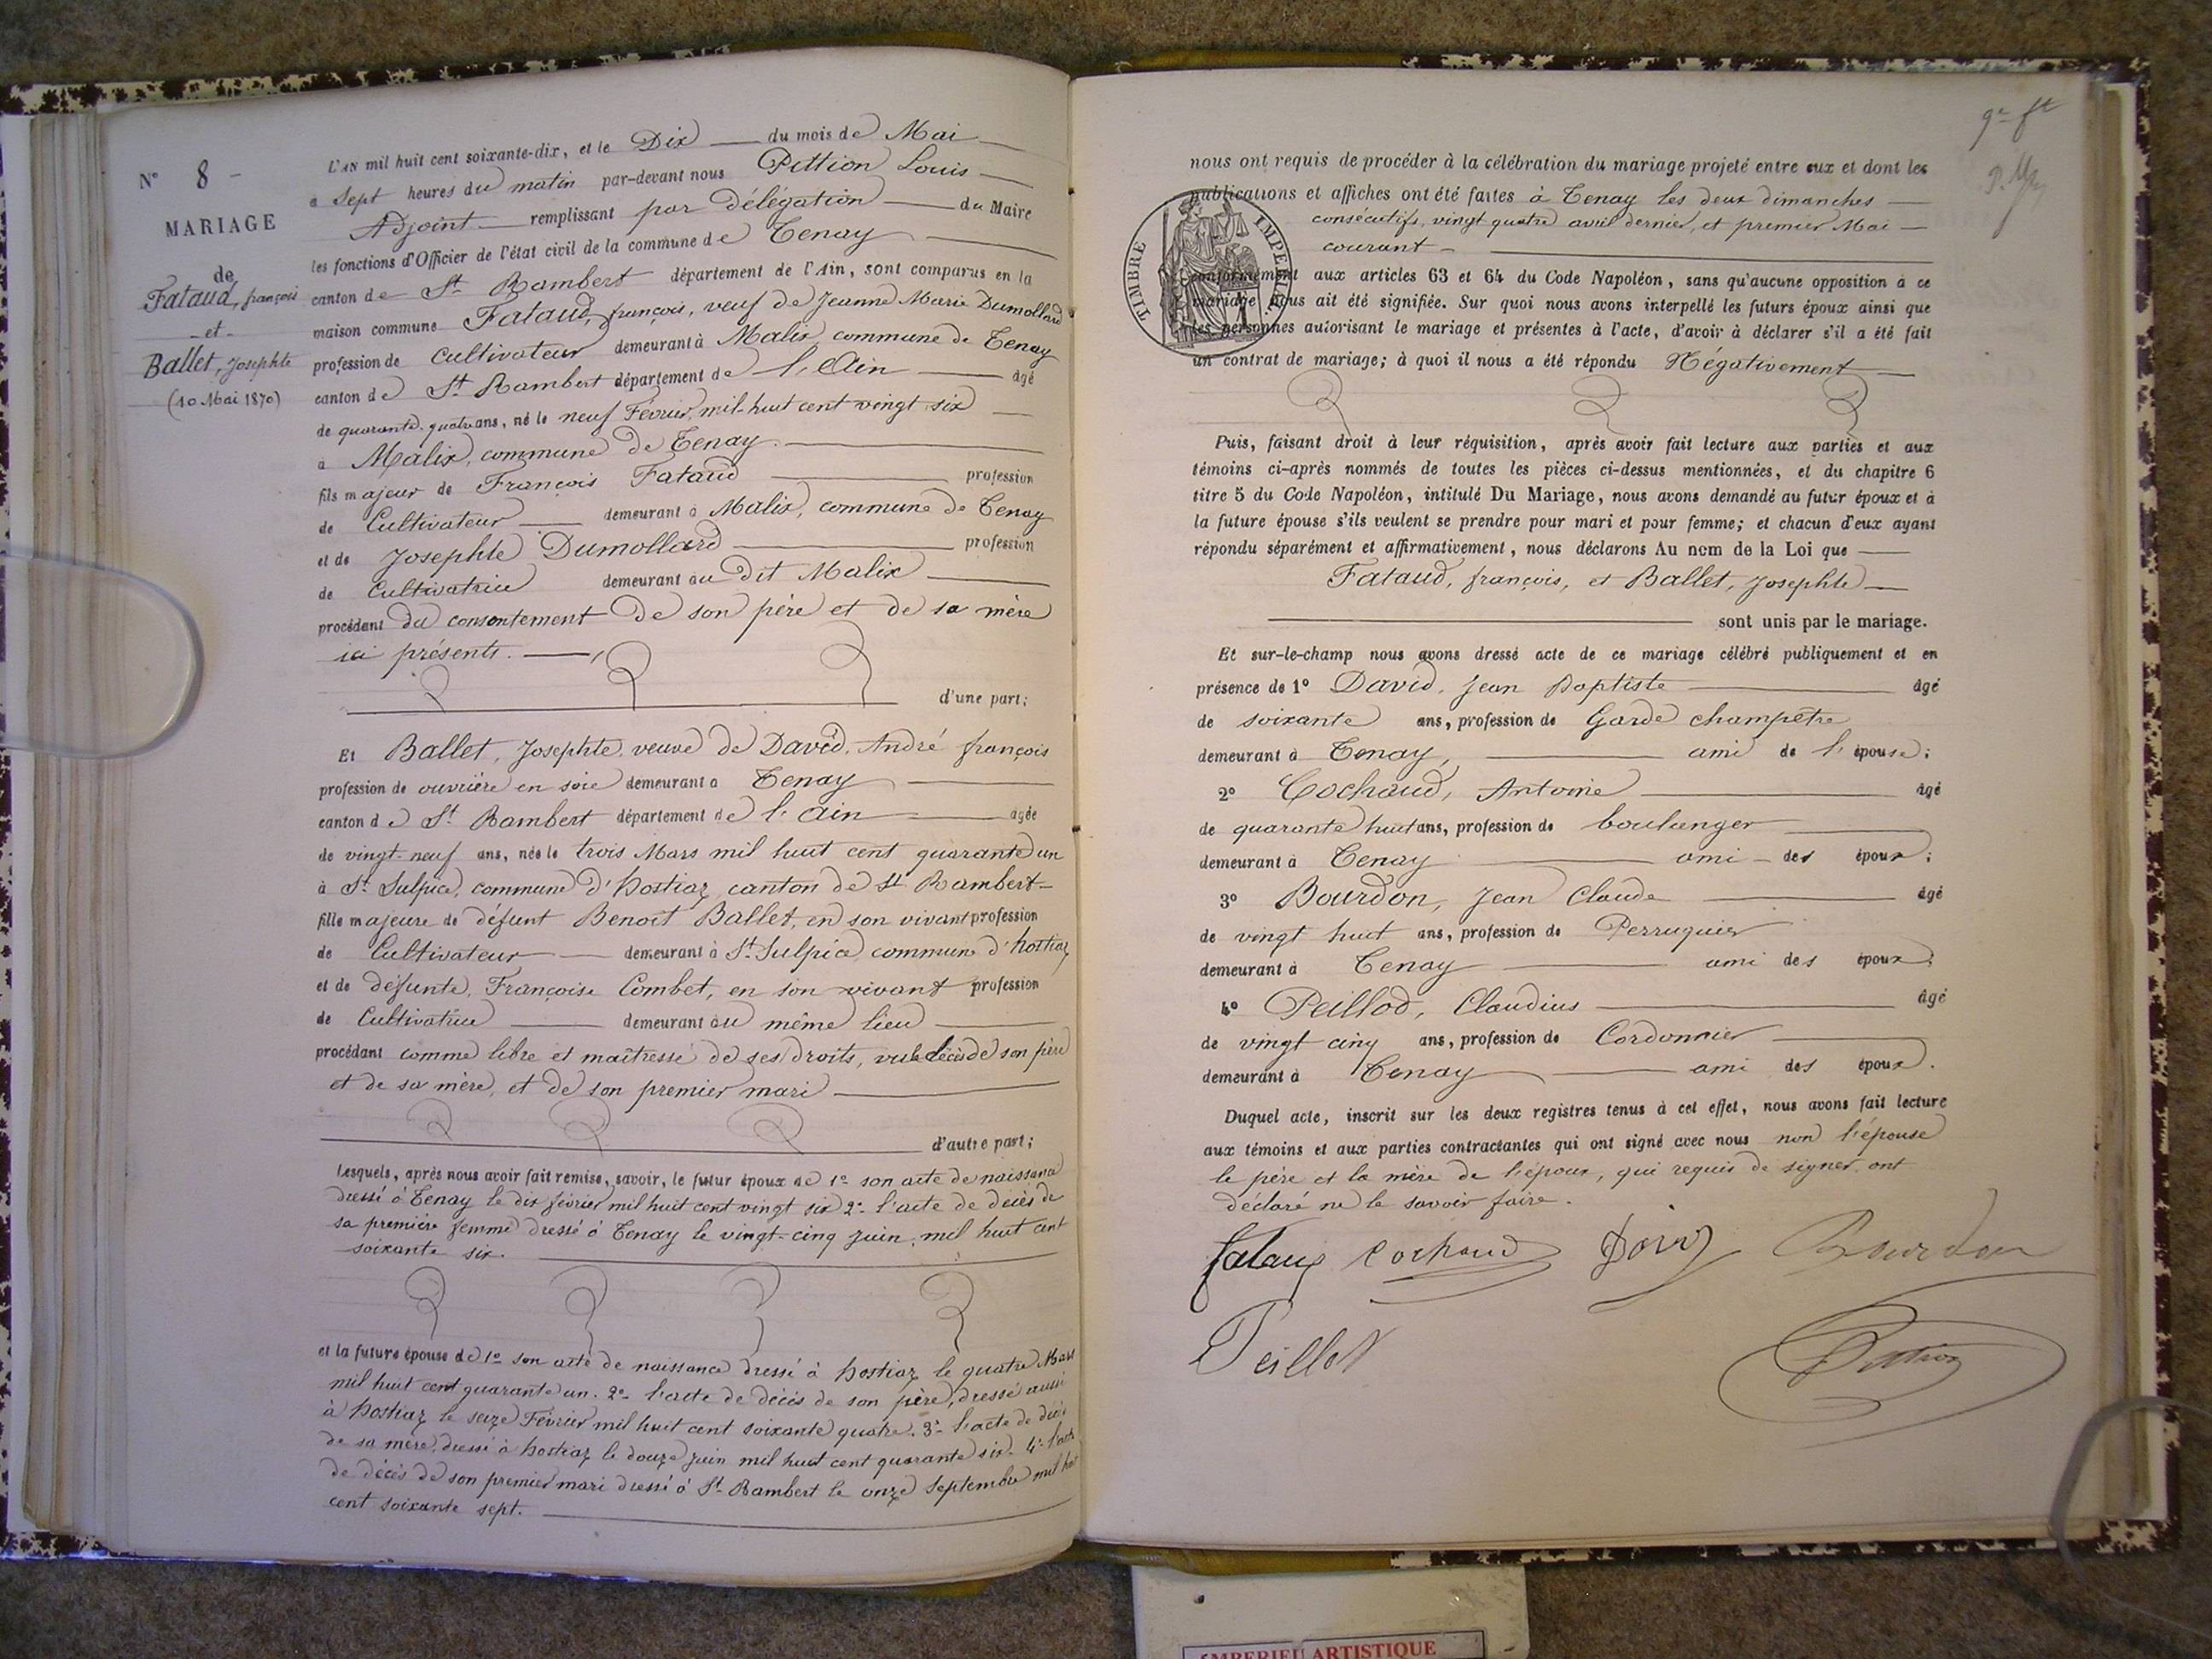 N° 8 -
MARIAGE
de
Fataud, françois
- et -
Ballet, Josephte
(10 Mai 1870)
L'AN mil huit cent soixante-dix, et le Dix du mois de Mai
à Sept heures du matin par-devant nous Pittion Louis
Adjoint remplissant par délégation du Maire
les fonctions d'Officier de l'état civil de la commune de Tenay
canton de St Rambert département de l'Ain, sont comparus en la
maison commune Fataud, françois, veuf de Jeanne Marie Dumollard
profession de Cultivateur demeurant à Malix, commune de Tenay
canton de St Rambert département de l'Ain âgé
de quarante-quatre ans, né le neuf Février mil-huit cent vingt six
à Malix, commune de Tenay.
fils majeur de François Fataud profession
de Cultivateur demeurant à Malix, commune de Tenay
et de Josephte Dumollard profession
de Cultivatrice demeurant au Dit Malix
procédant du consentement de son père et de sa mère
ici présents.
d'une part;
Et Ballet, Josephte, veuve de David, André françois
profession de ouvrière en soie demeurant à Tenay
canton de St Rambert département de l'Ain âgée
de vingt-neuf ans, née le trois Mars mil huit cent quarante un
à St Sulpice, commune d'hostiaz, canton de St Rambert-
fille majeure de défunt Benoît Ballet, en son vivant profession
de Cultivateur demeurant à St Sulpice, commune d'hostiaz
et de défunte, Françoise Combet, en son vivant profession
de Cultivatrice demeurant au même lieu
procédant comme libre et maîtresse de ses droits, vu le décès de son père
et de sa mère, et de son premier mari
d'autre part;
Lesquels, après nous avoir fait remise, savoir, le futur époux de 1° son acte de naissance
dressé à Tenay le dix février mil huit cent vingt six 2° l'acte de décès de
sa première femme dressé à Tenay le vingt-cinq juin, mil huit cent
soixante six.
et la future épouse de 1° son acte de naissance dressé à hostiaz le quatre Mars
mil huit cent quarante un. 2° l'acte de décès de son père, dressé aussi
à hostiaz le seize Février mil huit cent soixante quatre. 3° l'acte de décès
de sa mère, dressé à hostiaz le douze juin mil huit cent quarante six. 4° l'acte
de décès de son premier mari dressé à St Rambert le onze Septembre mil huit
cent soixante sept.
nous ont requis de procéder à la célébration du mariage projeté entre eux et dont les
publications et affiches ont été faites à Tenay les deux dimanches
consécutifs, vingt quatre avril dernier, et premier Mai
courant -
TIMBRE IMPERIAL
conformément aux articles 63 et 64 du Code Napoléon, sans qu'aucune opposition à ce
mariage nous ait été signifiée. Sur quoi nous avons interpellé les futurs époux ainsi que
les personnes autorisant le mariage et présentes à l'acte, d'avoir à déclarer s'il a été fait
un contrat de mariage; à quoi il nous a été répondu Négativement
Puis, faisant droit à leur réquisition, après avoir fait lecture aux parties et aux
témoins ci-après nommés de toutes les pièces ci-dessus mentionnées, et du chapitre 6
titre 5 du Code Napoléon, intitulé Du Mariage, nous avons demandé au futur époux et à
la future épouse s'ils veulent se prendre pour mari et pour femme; et chacun d'eux ayant
répondu séparément et affirmativement, nous déclarons Au nom de la Loi que
Fataud, françois, et Ballet, Josephte
sont unis par le mariage.
Et sur-le-champ nous avons dressé acte de ce mariage célébré publiquement et en
présence de 1° David, Jean Baptiste âgé
de soixante ans, profession de Garde champêtre
demeurant à Tenay, ami de l'épouse;
2° Cochaud, Antoine âgé
de quarante huit ans, profession de boulanger
demeurant à Tenay ami des époux;
3° Bourdon, Jean Claude âgé
de vingt huit ans, profession de Perruquier
demeurant à Tenay ami des époux;
4° Peillod, Claudius âgé
de vingt cinq ans, profession de Cordonnier
demeurant à Tenay ami des époux.
Duquel acte, inscrit sur les deux registres tenus à cet effet, nous avons fait lecture
aux témoins et aux parties contractantes qui ont signé avec nous non l'épouse
le père et la mère de l'époux, qui requis de signer, ont
déclaré ne le savoir faire.
fataud Cochaud David Bourdon
Peillod Pittion
AMBERIEU ARTISTIQUE